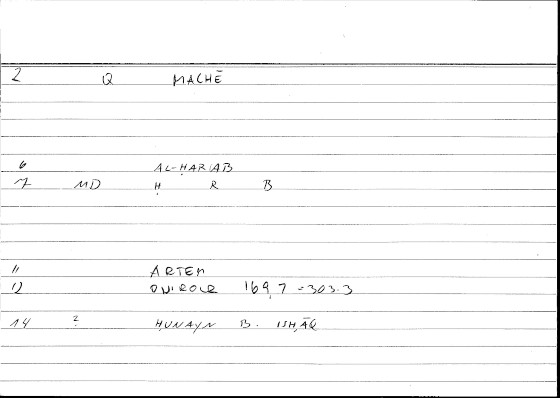 2 Q MACHĒ
6 AL-ḤARĀB
7 MD Ḥ R B
11 ARTEM
12 ONIROCR 169,7 = 303.3
14 ? ḤUNAYN B. ISḤĀQ